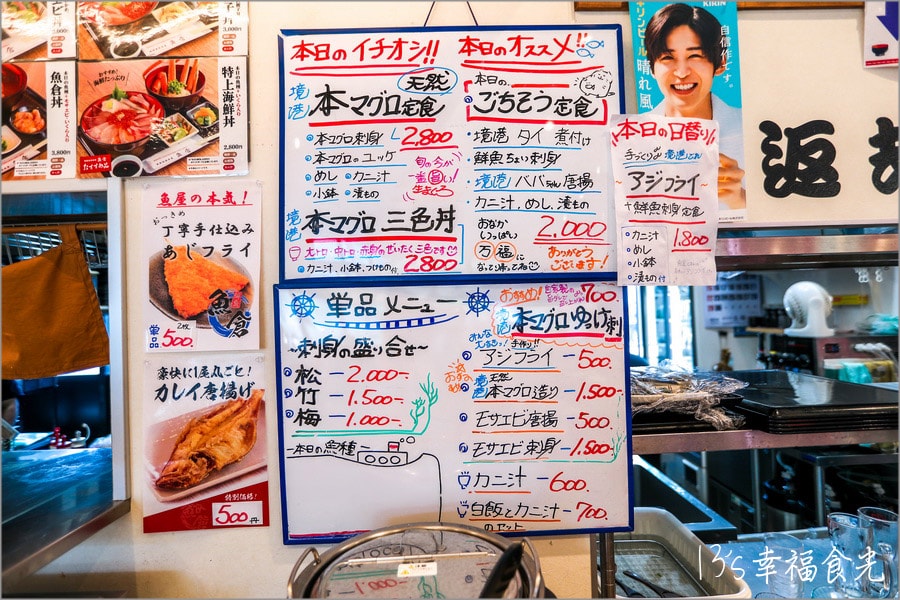 3,000円
魚倉丼
3,800円
特上海鮮丼
2,800円
魚屋の本気!
丁寧手仕込み
あじフライ
魚倉
単品 2枚 500円
豪快に1尾丸ごと!
カレイ唐揚げ
特別価格!
500円
本日のイチオシ!!
天然
境港 本マグロ定食
本マグロ刺身 2,800
本マグロのユッケ
めし カニ汁
小鉢 漬もの
旬の今が
一番旨い!
境港 本マグロ 三色丼
大トロ・中トロ・赤身のぜいたく三色です
カニ汁、小鉢、つけもの付 2800
本日のオススメ!!
本日の
ごちそう定食
・境港 タイ 煮付け
・鮮魚ちょい刺身
・境港 ババちゃん唐揚
・カニ汁、めし、漬もの
おなか
いっぱい
万福に
なって帰ってね
2,000
ありがとう
ございます!
本日の日替り
手づくり 境港
アジフライ
+鮮魚刺身定食
カニ汁
めし
小鉢
漬もの付
1,800
単品メニュー
〜刺身の盛り合せ〜
松 -2,000-
竹 -1,500-
梅 -1,000-
-本日の魚種-
おすすめ!
700.
境港 本マグロゆっけ刺
みんな
大好きっ!
手作り!!
アジフライ -500.
境港 天然
本マグロ造り -1,500-
モサエビ唐揚 -500
モサエビ刺身 -1,500.
カニ汁 -600.
白飯とカニ汁 -700.
のセット
KIRIN
キリンビール 晴れ風
自信作です。
返
13's幸福食光